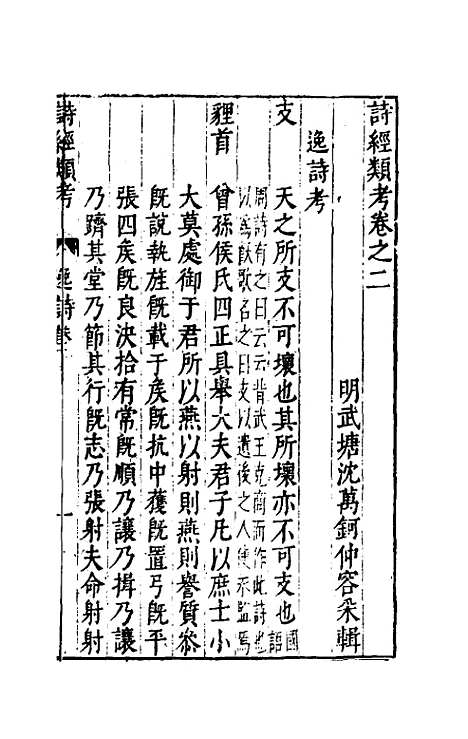 詩經類考卷之二
明武塘沈萬鈳仲容采輯
逸詩考
支
天之所支不可壞也其所壞亦不可支也國語
周詩有之曰云云昔武王克商而作此詩也
以為飫歌名之曰支以遺後之人使永監焉
貍首
曾孫侯氏四正具舉大夫君子凡以庶士小
大莫處御于君所以燕以射則燕則譽質參
既說執旌既載于侯既抗中獲既置弓既平
張四侯既良決拾有常既順乃讓乃揖乃讓
乃躋其堂乃節其行既志乃張射夫命射射
詩經類考
逸詩卷二
一